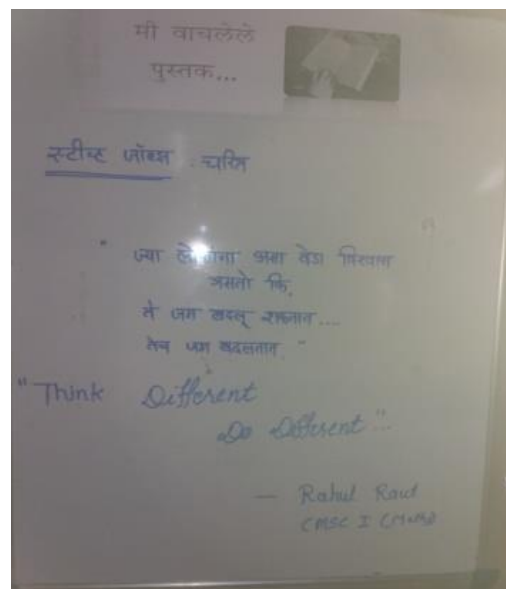 मी वाचलेले
पुस्तक...
स्टीव्ह जॉब्स : चरित्र
" ज्या लोकांना असा वेडा विश्वास
असतो कि,
ते जग बदलू शकतात....
तेच जग बदलतात. "
"Think Different
Do Different"...
— Rahul Raut
(MSC I